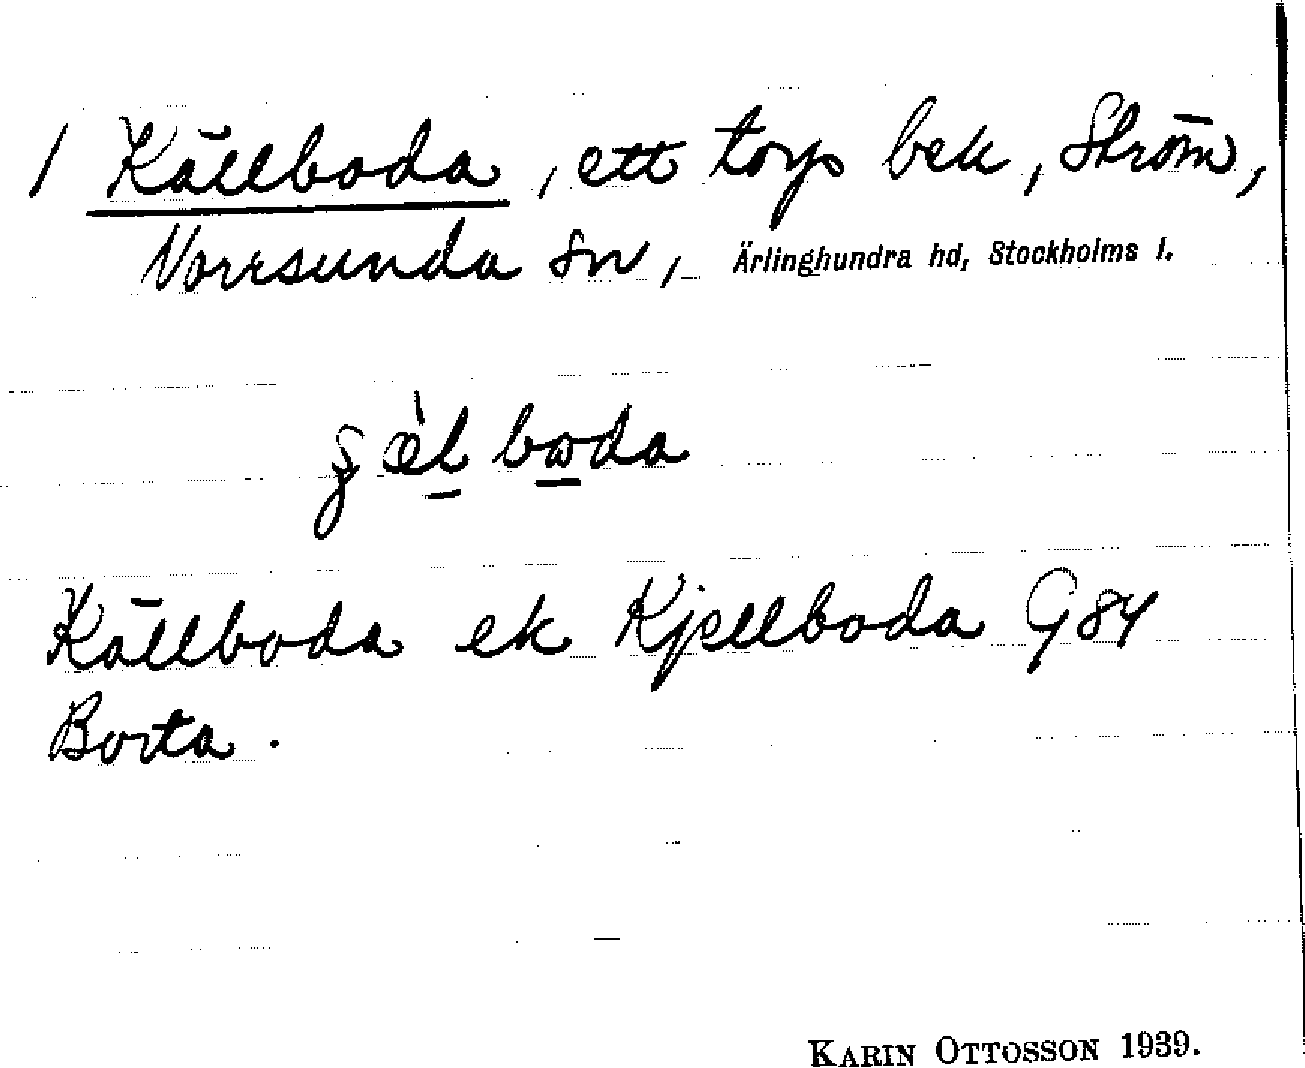 1 Källboda, ett torp bek, Ström,
Norrsunda sn, Ärlinghundra hd, Stockholms l.
boda
Källboda ek Kjellboda G 84
Borta.
KARIN OTTOSSON 1939.